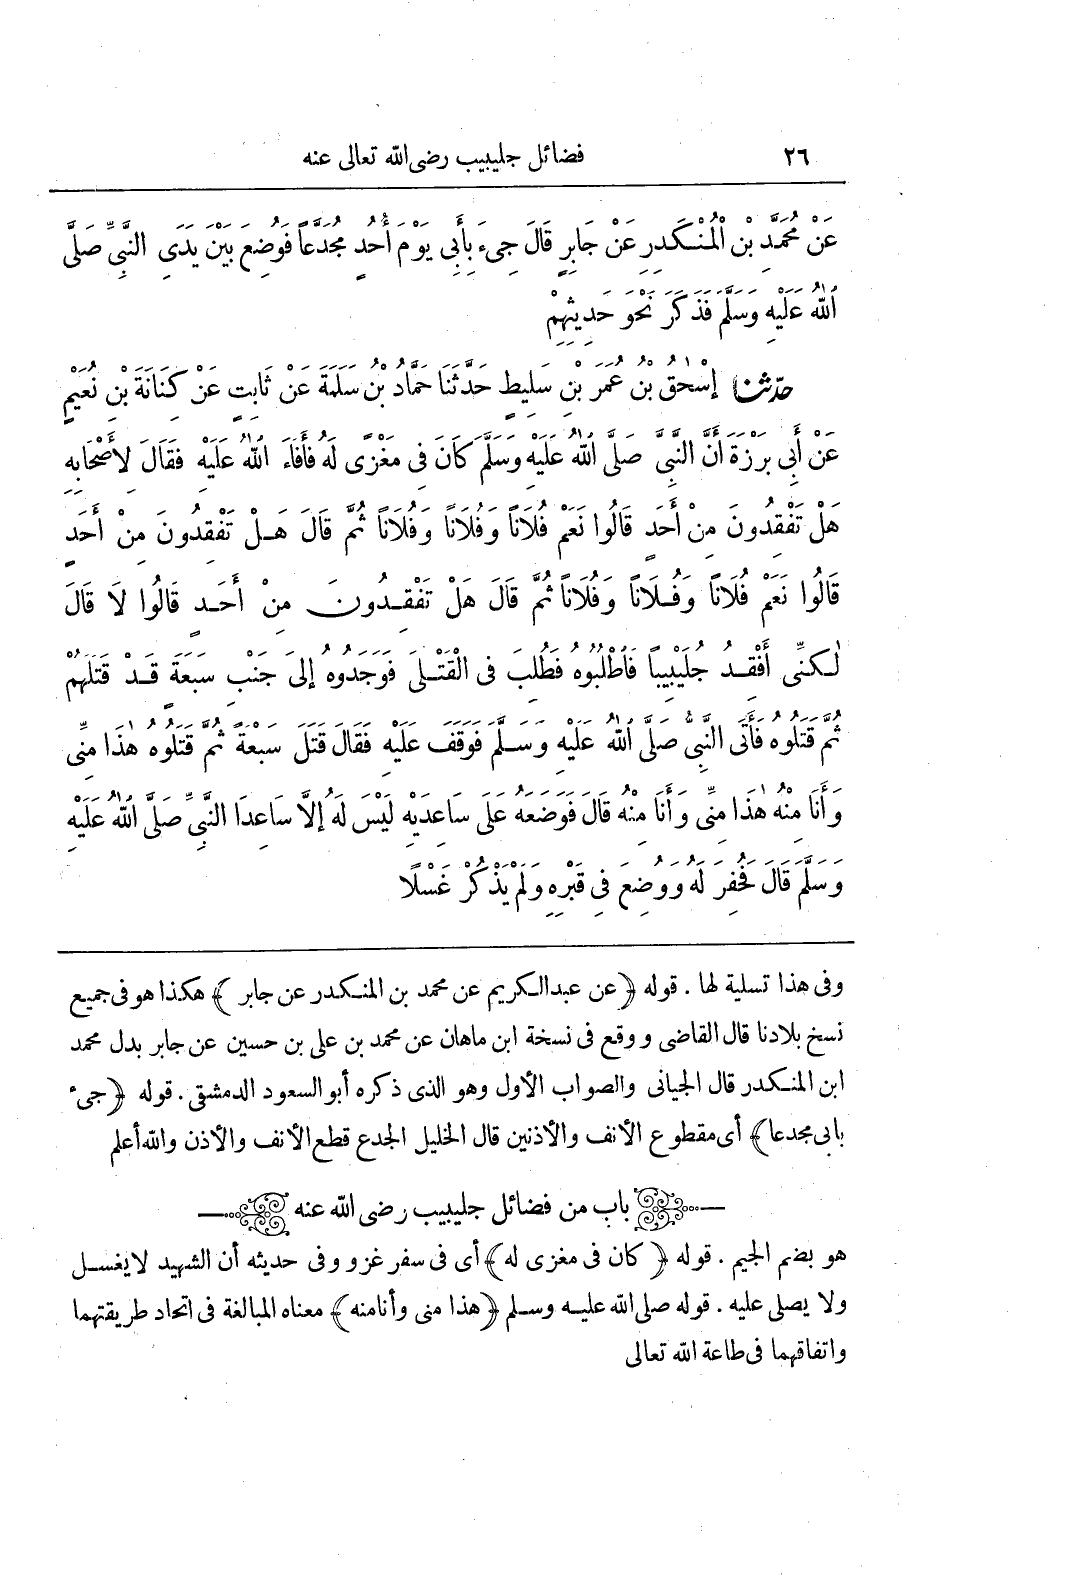 ٢٦ فضائل جليبيب رضى الله تعالى عنه
عَنْ مُحَمَّدِ بْنِ الْمُنْكَدِرِ عَنْ جَابِرٍ قَالَ جِىءَ بِأَبِى يَوْمَ أُحُدٍ مُجَدَّعاً فَوُضِعَ بَيْنَ يَدَىِ النَّبِىِّ صَلَّى
اللهُ عَلَيْهِ وَسَلَّمَ فَذَكَرَ نَحْوَ حَدِيثِهِمْ
حدّثنا إِسْحٰقُ بْنُ عُمَرَ بْنِ سَلِيطٍ حَدَّثَنَا حَمَّادُ بْنُ سَلَمَةَ عَنْ ثَابِتٍ عَنْ كِنَانَةَ بْنِ نُعَيْمٍ
عَنْ أَبِى بَرْزَةَ أَنَّ النَّبِىَّ صَلَّى اللهُ عَلَيْهِ وَسَلَّمَ كَانَ فِى مَغْزًى لَهُ فَأَفَاءَ اللهُ عَلَيْهِ فَقَالَ لِأَصْحَابِهِ
هَلْ تَفْقِدُونَ مِنْ أَحَدٍ قَالُوا نَعَمْ فُلَاناً وَفُلَاناً وَفُلَاناً ثُمَّ قَالَ هَلْ تَفْقِدُونَ مِنْ أَحَدٍ
قَالُوا نَعَمْ فُلَاناً وَفُلَاناً وَفُلَاناً ثُمَّ قَالَ هَلْ تَفْقِدُونَ مِنْ أَحَدٍ قَالُوا لَا قَالَ
لٰكِنِّى أَفْقِدُ جُلَيْبِيباً فَاطْلُبُوهُ فَطُلِبَ فِى الْقَتْلَى فَوَجَدُوهُ إِلَى جَنْبِ سَبْعَةٍ قَدْ قَتَلَهُمْ
ثُمَّ قَتَلُوهُ فَأَتَى النَّبِىُّ صَلَّى اللهُ عَلَيْهِ وَسَلَّمَ فَوَقَفَ عَلَيْهِ فَقَالَ قَتَلَ سَبْعَةً ثُمَّ قَتَلُوهُ هٰذَا مِنِّى
وَأَنَا مِنْهُ هٰذَا مِنِّى وَأَنَا مِنْهُ قَالَ فَوَضَعَهُ عَلَى سَاعِدَيْهِ لَيْسَ لَهُ إِلَّا سَاعِدَا النَّبِىِّ صَلَّى اللهُ عَلَيْهِ
وَسَلَّمَ قَالَ فَحُفِرَ لَهُ وَوُضِعَ فِى قَبْرِهِ وَلَمْ يَذْكُرْ غَسْلًا
وفى هذا تسلية لها . قوله ﴿عن عبدالكريم عن محمد بن المنكدر عن جابر﴾ هكذا هو فى جميع
نسخ بلادنا قال القاضى ووقع فى نسخة ابن ماهان عن محمد بن على بن حسين عن جابر بدل محمد
ابن المنكدر قال الجيانى والصواب الأول وهو الذى ذكره أبو السعود الدمشقى . قوله ﴿جىء
بابى مجدعا﴾ أى مقطوع الأنف والأذنين قال الخليل الجدع قطع الأنف والأذن والله أعلم
باب من فضائل جليبيب رضى الله عنه
هو بضم الجيم . قوله ﴿كان فى مغزى له﴾ أى فى سفر غزو وفى حديثه أن الشهيد لا يغسل
ولا يصلى عليه . قوله صلى الله عليه وسلم ﴿هذا منى وأنامنه﴾ معناه المبالغة فى اتحاد طريقتهما
واتفاقهما فى طاعة الله تعالى